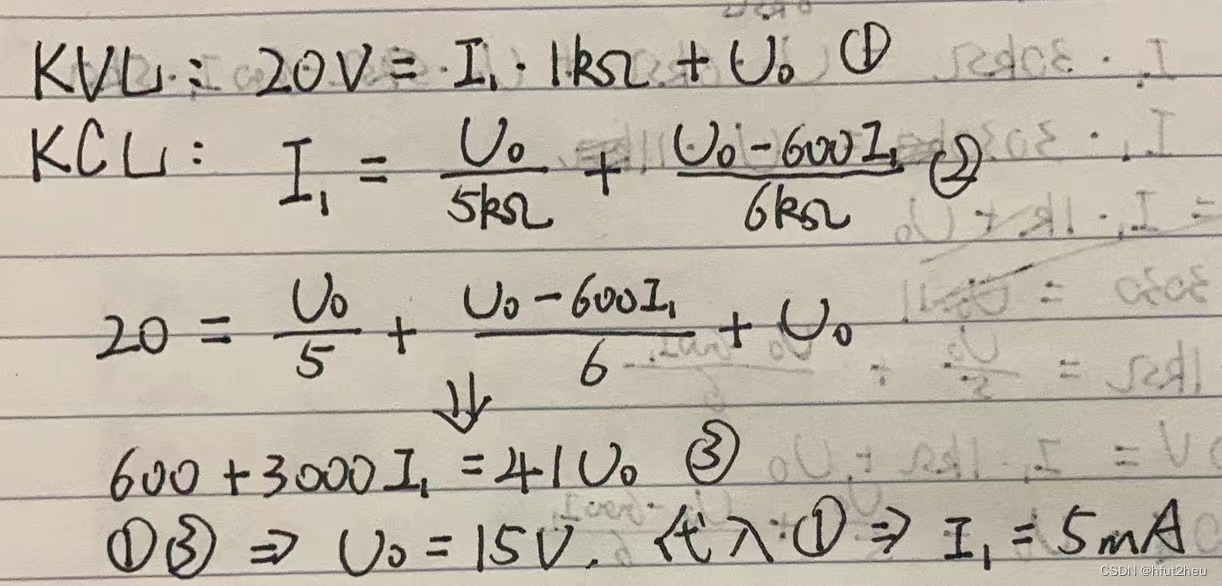 KVL: 20V = I₁ · 1kΩ + U₀ ①
KCL: I₁ = U₀/5kΩ + (U₀-600I₁)/6kΩ ②
20 = U₀/5 + (U₀-600I₁)/6 + U₀
⇓
600+3000I₁ = 41U₀ ③
①③ ⇒ U₀ = 15V. 代入① ⇒ I₁ = 5mA
CSDN @hfut2heu